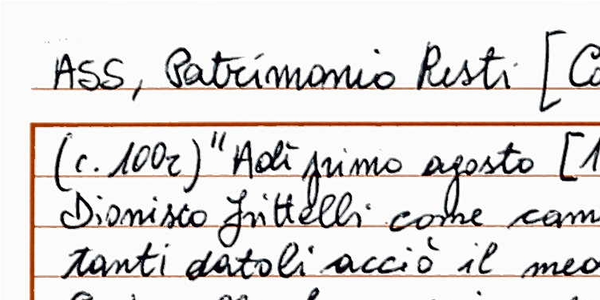 ASS, Patrimonio Resti [Co
(c. 100r) "Adì primo agosto [1
Dionisio Grittelli come cam
tanti datoli acciò il med